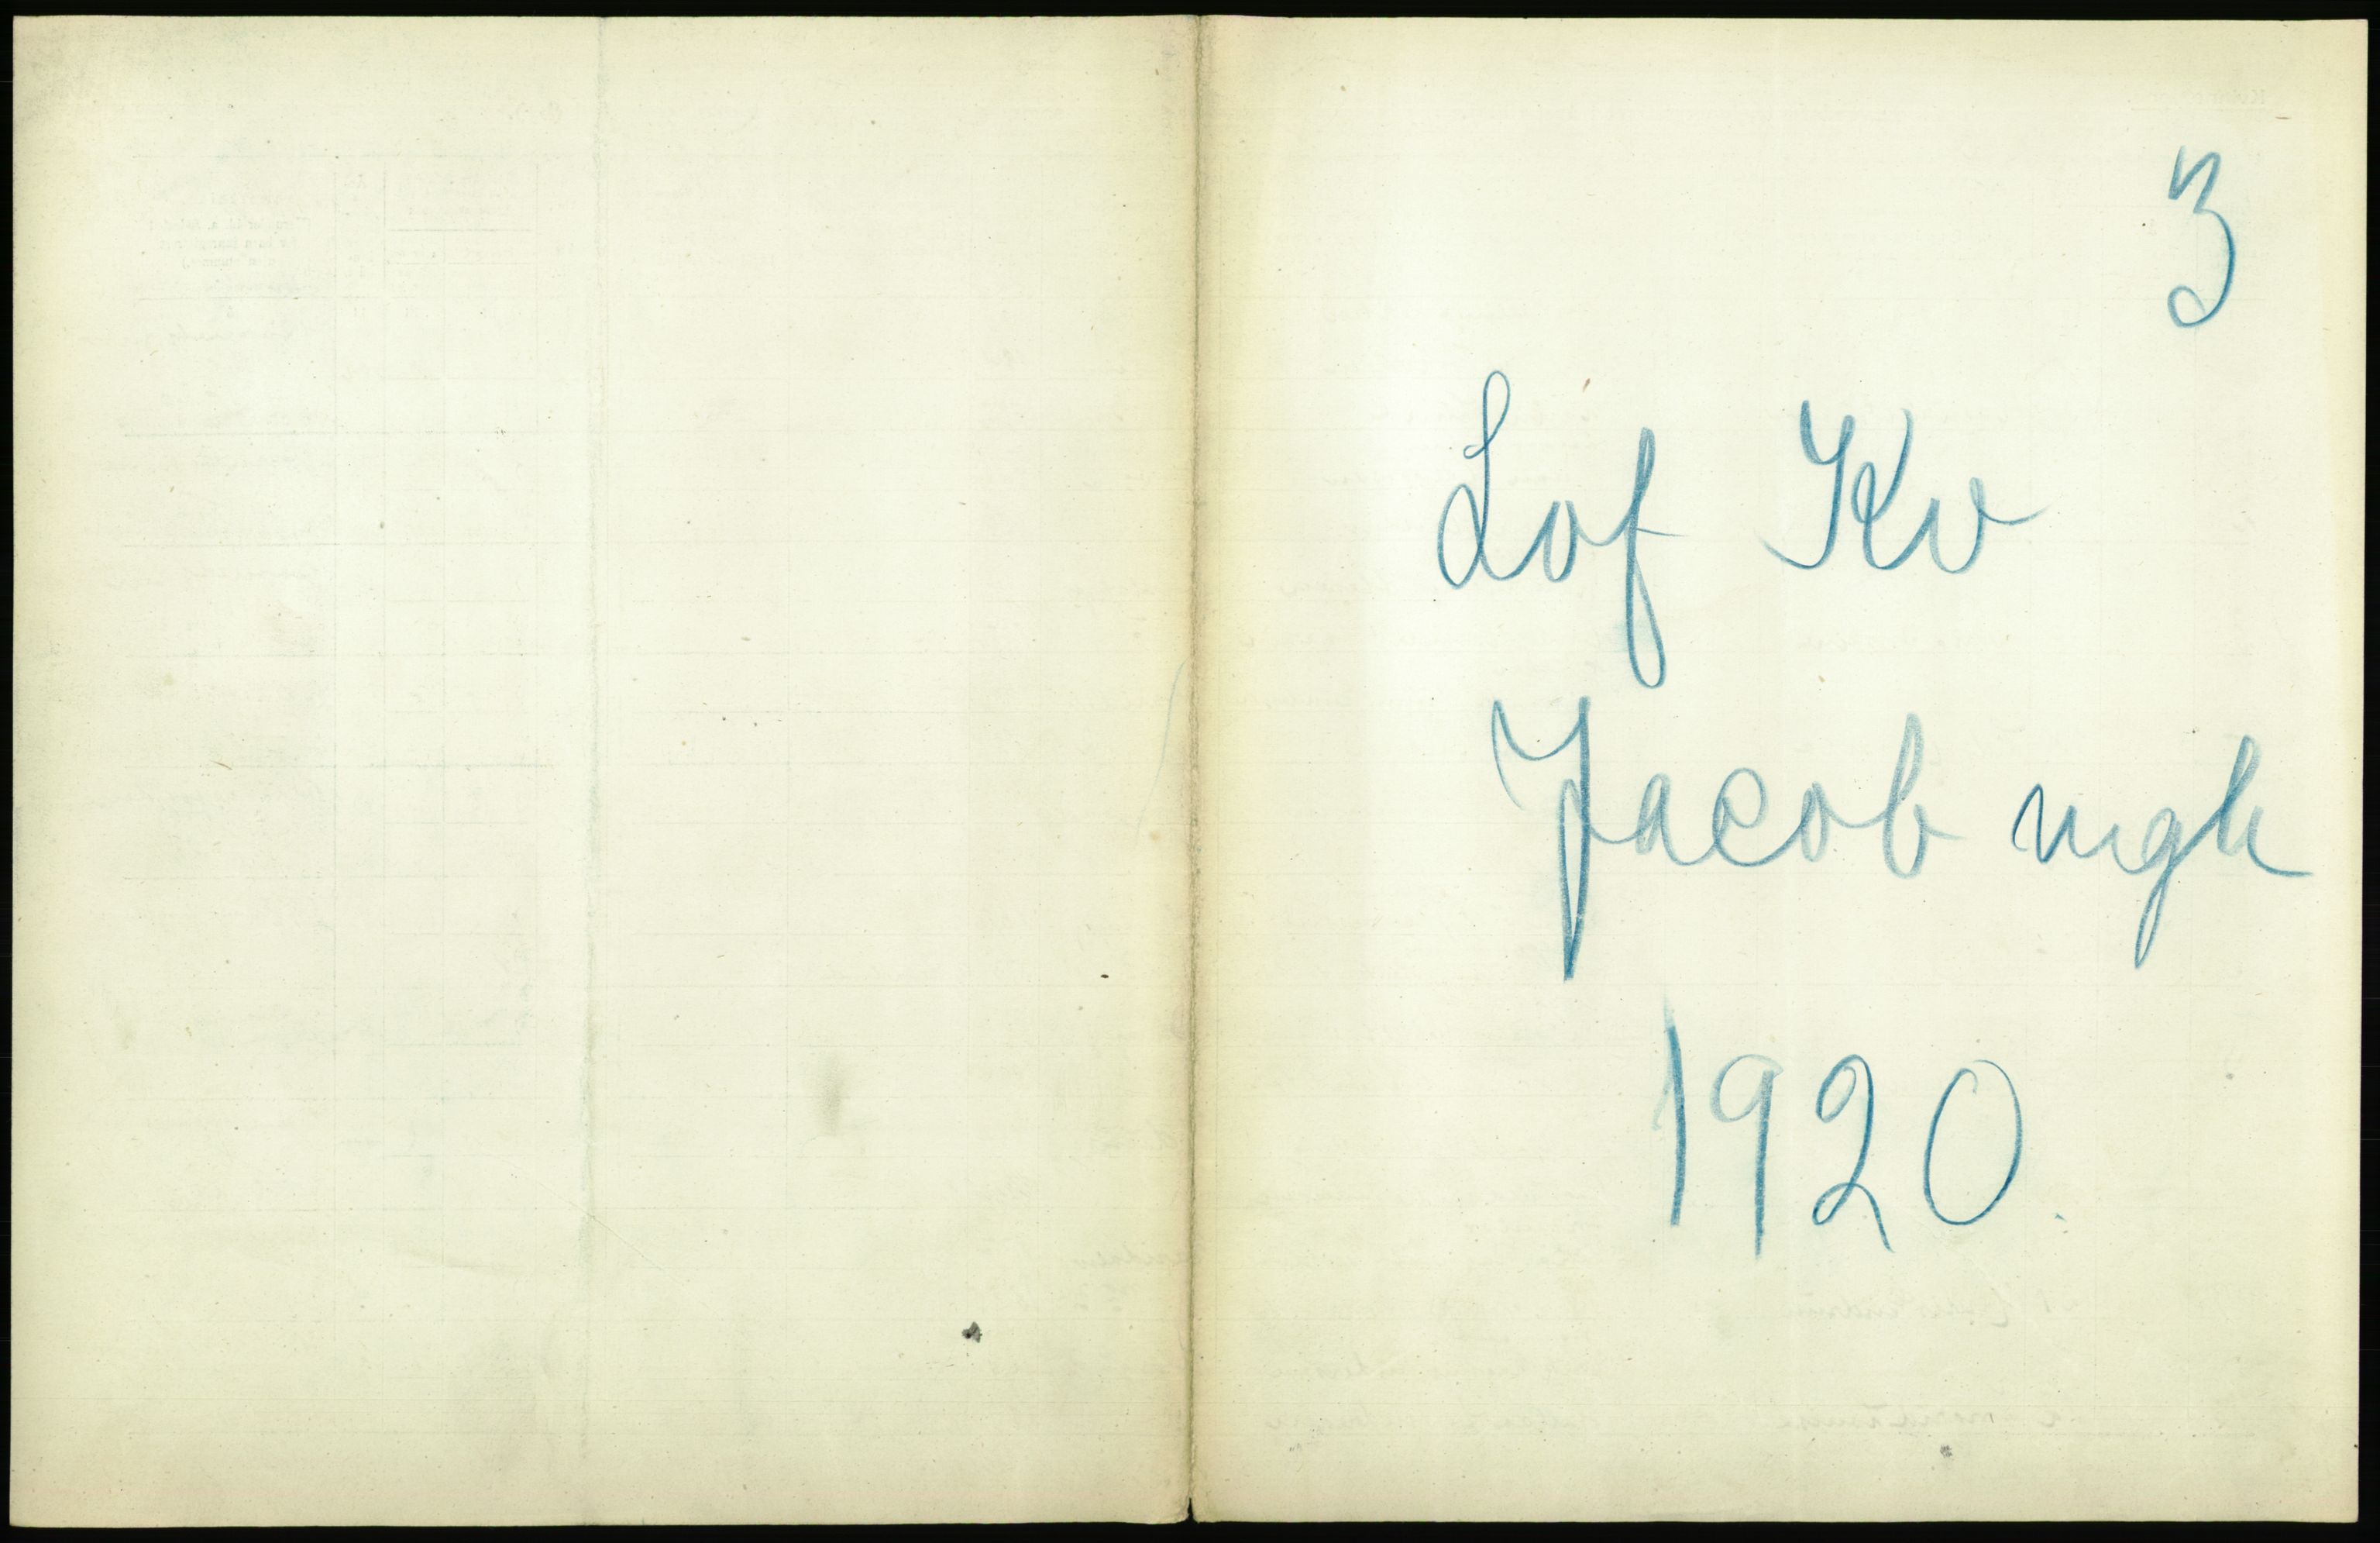 3
Lof Kv
Jacob mgh
1920.